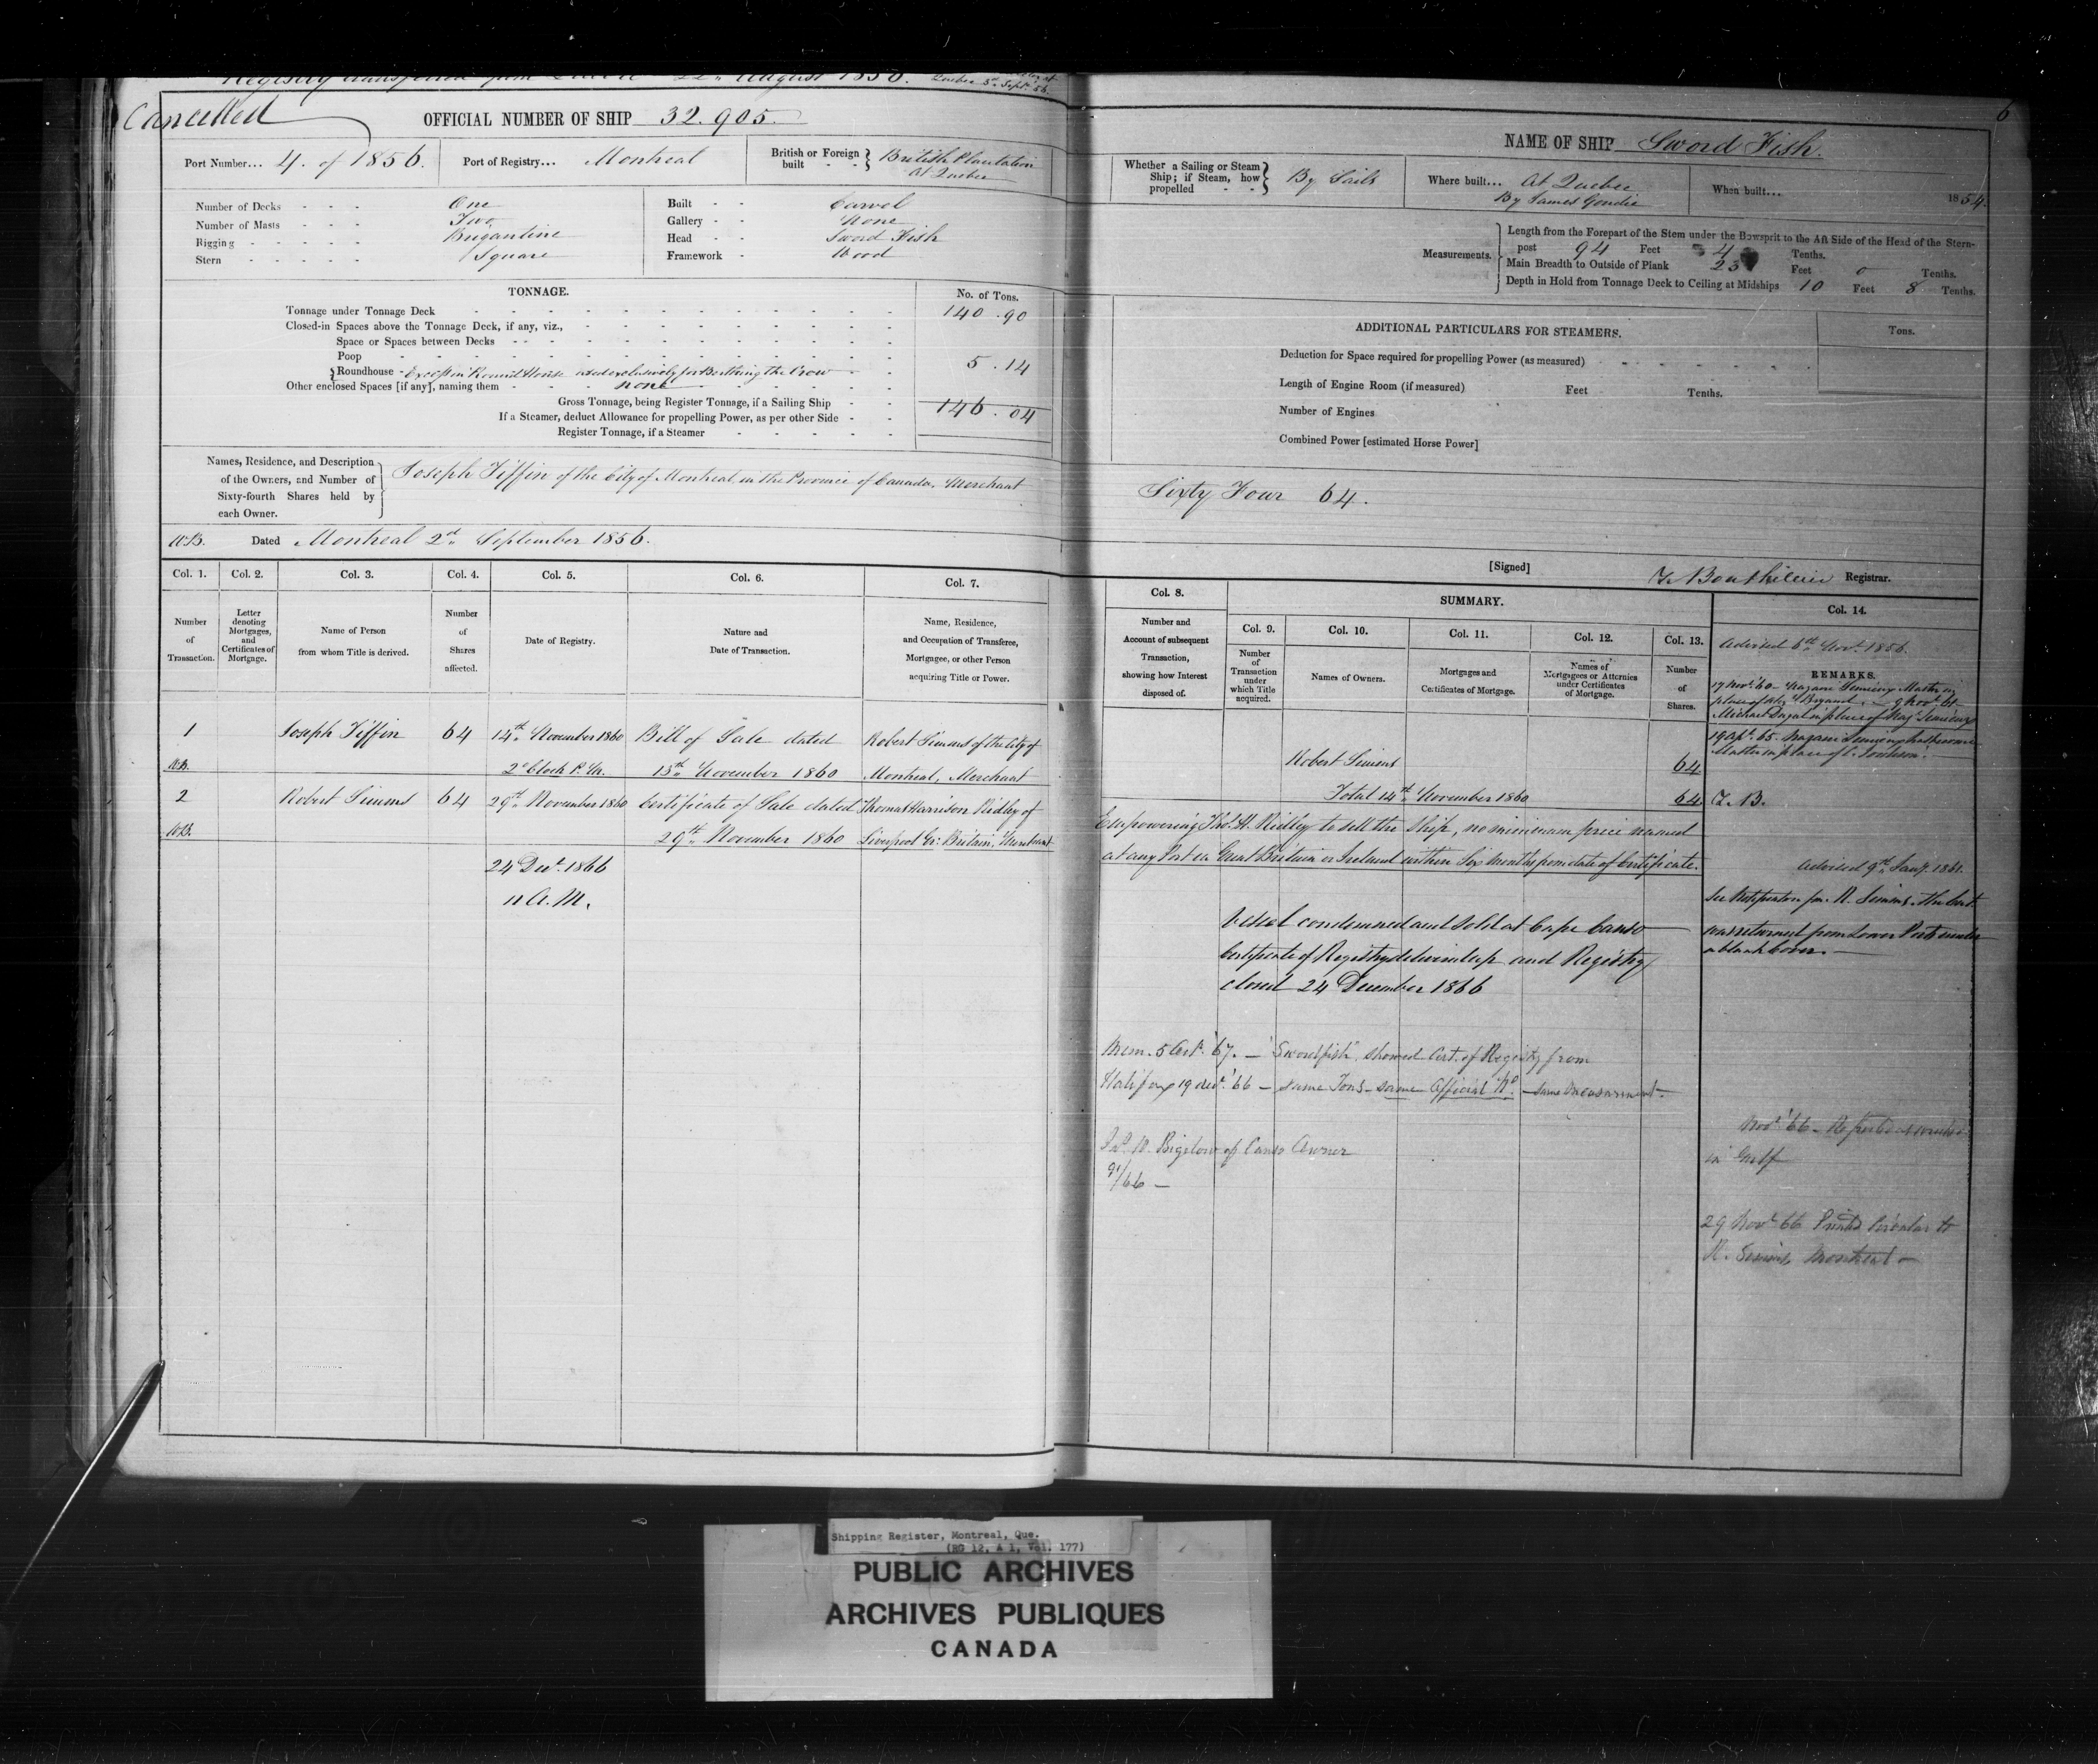 Registry transferred from Quebec 22nd August 1856.
Quebec 3d Sept 56.
Cancelled
OFFICIAL NUMBER OF SHIP 32.905.
Port Number... 4. of 1856.
Port of Registry... Montreal
British or Foreign built - - British Plantation
At Quebec
Number of Decks - - - One
Number of Masts - - - Two
Rigging - - - - - Brigantine
Stern - - - - - Square
Built - - Carvel
Gallery - - None
Head - - Sword Fish
Framework - Wood
TONNAGE.
No. of Tons.
Tonnage under Tonnage Deck 140.90
Closed-in Spaces above the Tonnage Deck, if any, viz.,
Space or Spaces between Decks
Poop
Roundhouse - Except in Round House used exclusively for Berthing the Crew 5.14
Other enclosed Spaces [if any], naming them none
Gross Tonnage, being Register Tonnage, if a Sailing Ship 146.04
If a Steamer, deduct Allowance for propelling Power, as per other Side
Register Tonnage, if a Steamer
Names, Residence, and Description
of the Owners, and Number of
Sixty-fourth Shares held by
each Owner.
Joseph Tiffin of the City of Montreal in the Province of Canada, Merchant
W.B. Dated Montreal 2nd September 1856.
Col. 1. Col. 2. Col. 3. Col. 4. Col. 5. Col. 6. Col. 7.
Number of Transaction.
Letter denoting Mortgages, and Certificates of Mortgage.
Name of Person from whom Title is derived.
Number of Shares affected.
Date of Registry.
Nature and Date of Transaction.
Name, Residence, and Occupation of Transferee, Mortgagee, or other Person acquiring Title or Power.
1 Joseph Tiffin 64 14th November 1860 Bill of Sale dated Robert Simms of the City of
W.B. 2 o'Clock P.M. 13th November 1860 Montreal, Merchant
2 Robert Simms 64 29th November 1860 Certificate of Sale dated Thomas Harrison Ridley of
W.B. 29th November 1860 Liverpool Gr: Britain, Merchant
24 Decr. 1866
11 A.M.
6
NAME OF SHIP Sword Fish.
Whether a Sailing or Steam Ship; if Steam, how propelled - - By Sails
Where built... At Quebec
By James Goudie
When built... 1854.
Measurements.
Length from the Forepart of the Stem under the Bowsprit to the Aft Side of the Head of the Stern-
post 94 Feet 4 Tenths.
Main Breadth to Outside of Plank 23 Feet 0 Tenths.
Depth in Hold from Tonnage Deck to Ceiling at Midships 10 Feet 8 Tenths.
ADDITIONAL PARTICULARS FOR STEAMERS.
Tons.
Deduction for Space required for propelling Power (as measured)
Length of Engine Room (if measured) Feet Tenths.
Number of Engines
Combined Power [estimated Horse Power]
Sixty Four 64.
[Signed] Registrar.
Col. 8. SUMMARY. Col. 14.
Col. 9. Col. 10. Col. 11. Col. 12. Col. 13.
Number and Account of subsequent Transaction, showing how Interest disposed of.
Number of Transaction under which Title acquired.
Names of Owners.
Mortgages and Certificates of Mortgage.
Names of Mortgagees or Attornies under Certificates of Mortgage.
Number of Shares.
Advised 6th Novr. 1856.
REMARKS.
17 Novr. '60 - Master in
place of
Michael in place of
19 Apl. '65.
Master in place of
Robert Simms 64
Total 14th November 1860 64
Empowering Thos. H. Ridley to sell the Ship, no minimum price named
at any Port in Great Britain or Ireland within Six Months from date of Certificate.
Advised 9th Jany. 1861.
See R. Simms
was returned from Lower Ports under
a blank Cover.
Vessel condemned and Sold at Cape Canso
Certificate of Registry delivered up and Registry
closed 24 December 1866
Mem. 5 Oct. '67. - "Swordfish" showed Cert. of Registry from
Halifax 19 Decr. '66 - same Tons - same Official No. - same measurement -
Bigelow of Canso Owner
/66 -
Novr. '66 - Reported
in Gulf
29 Novr. '66 Printed Circular to
R. Simms Montreal -
Shipping Register, Montreal, Que.
(RG 12, A 1, Vol. 177)
PUBLIC ARCHIVES
ARCHIVES PUBLIQUES
CANADA